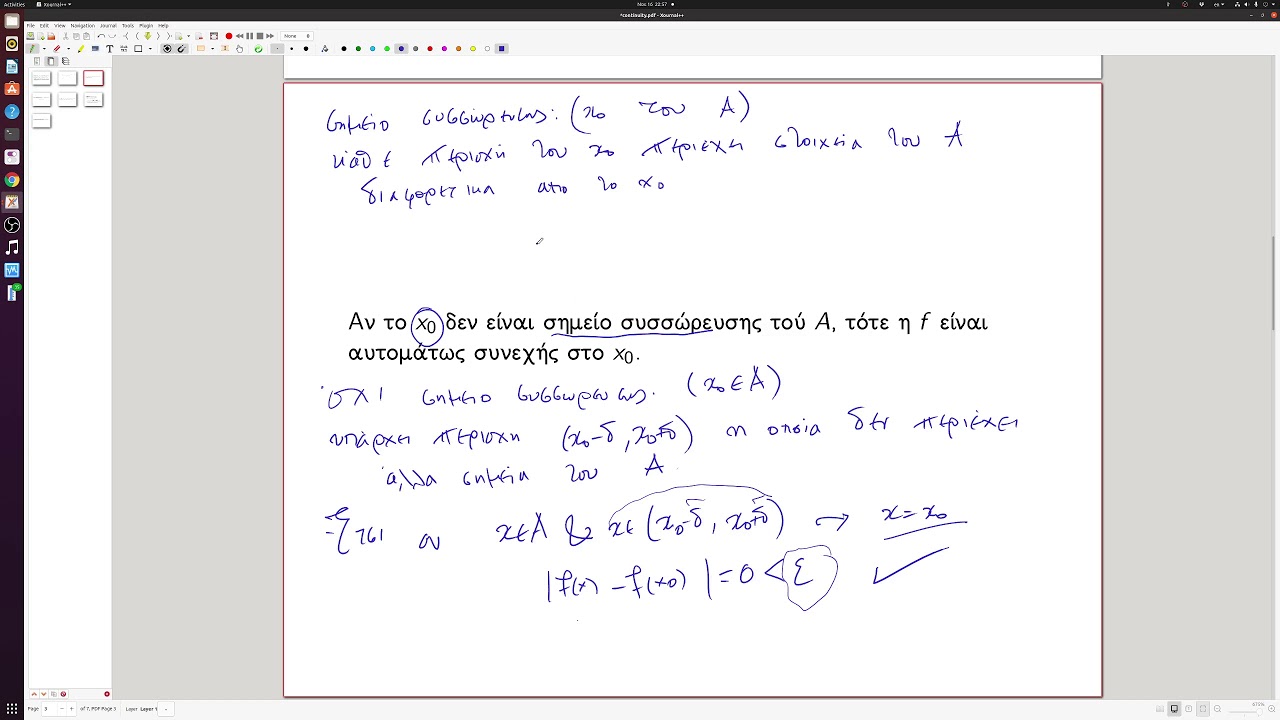 Activities
Xournal++
Nov 16 22:57
en
*continuity.pdf - Xournal++
File Edit View Navigation Journal Tools Plugin Help
None
σημείο συσσωρευσης: (x₀ του A)
καθε περιοχή του x₀ περιεχει στοιχεία του A
διαφορετικα απο το x₀
Αν το x₀ δεν είναι σημείο συσσώρευσης τού A, τότε η f είναι
αυτομάτως συνεχής στο x₀.
οχι σημειο συσσωρευσης. (x₀ ∈ A)
υπάρχει περιοχη (x₀-δ, x₀+δ) η οποία δεν περιέχει
άλλα σημεία του A
Ετσι αν x∈A & x∈(x₀-δ, x₀+δ) → x=x₀
|f(x) - f(x₀)| = 0 < ε ✓
Page 3 of 7, PDF Page 3 Layer Layer 1
675%